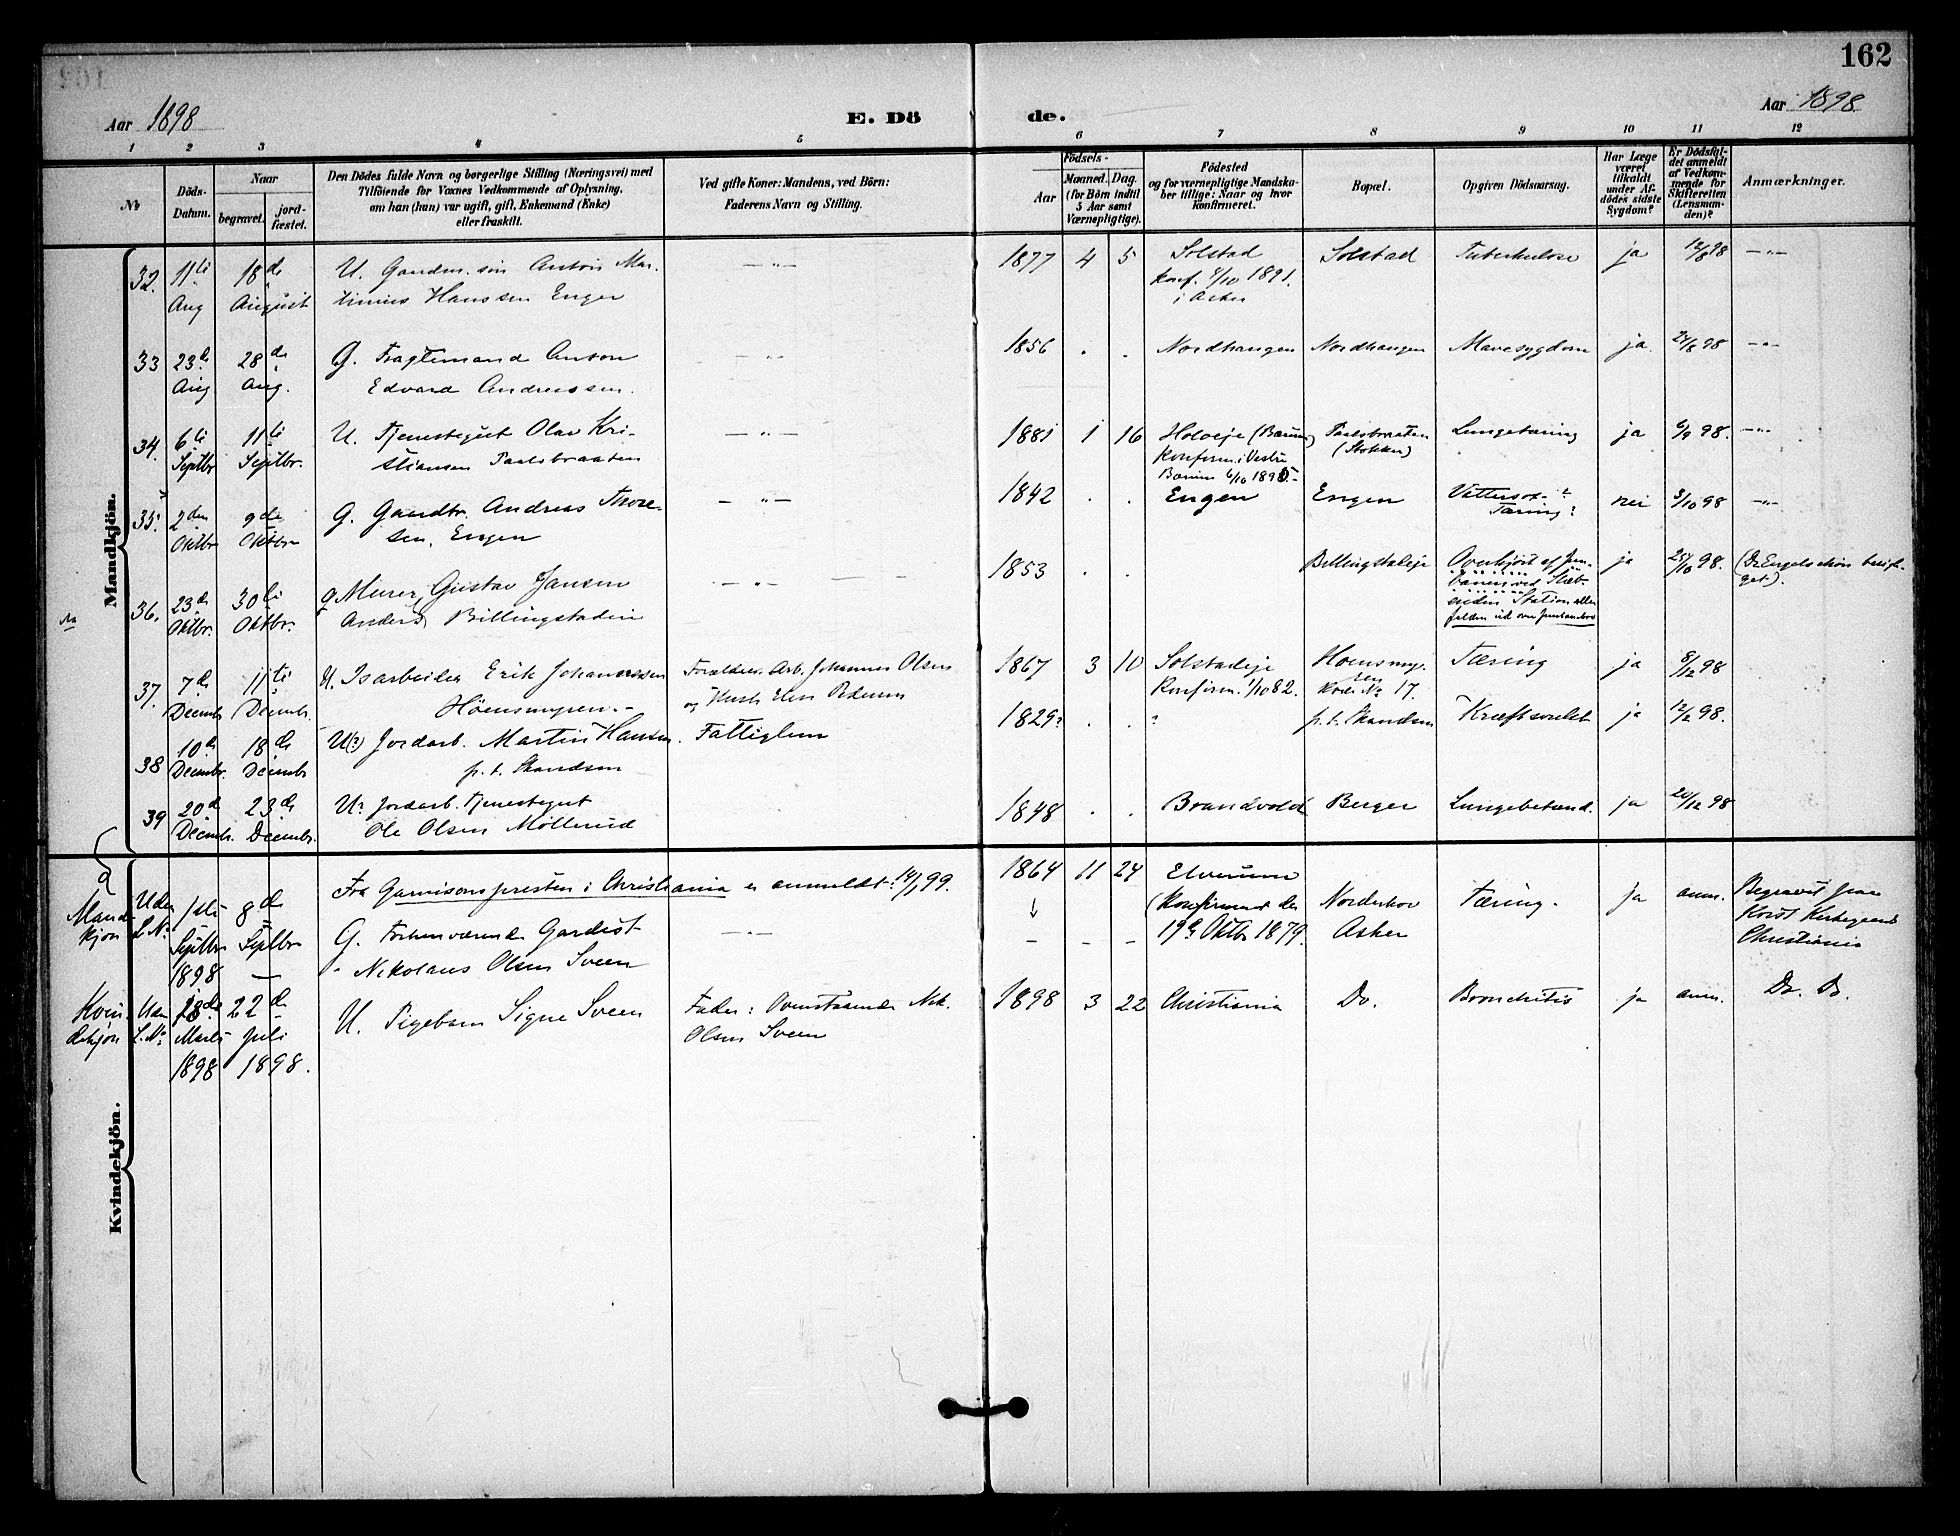 162
Aar 1898
E. Dö
de.
Aar 1898
1 2 3 4 5 6 7 8 9 10 11 12
№
Döds-
Datum.
Naar
begravet.
jord-
fæstet.
Den Dödes fulde Navn og borgerlige Stilling (Næringsvei) med
Tilföiende for Voxnes Vedkommende af Oplysning,
om han (hun) var ugift, gift, Enkemand (Enke)
eller fraskilt.
Ved gifte Koner: Mandens, ved Börn:
Faderens Navn og Stilling.
Födsels-
Aar
Maaned. Dag.
(for Börn indtil
5 Aar samt
Værnepligtige).
Födested
og for værnepligtige Mandska-
ber tillige: Naar og hvor
konfirmeret.
Bopæl.
Opgiven Dödsaarsag.
Har Læge
været
tilkaldt
under Af-
dödes sidste
Sygdom?
Er Dödsfal-
det anmeldt
af Vedkom-
mende for
Skifteretten
(Lensman-
den)?
Anmærkninger.
Mandkjön.
32. 11te Aug 18de August
U. Gaardm. søn Anton Mar-
tinius Hanssen Enger
1877 4 5
Solstad
konf. 4/10 1891.
i Asker
Solstad
Tuberkulose
ja
12/8 98
33 23de Aug. 28de Aug.
G. Fragtemand Anton
Edvard Andreassen.
1856 . .
Nordhaugen
Nordhaugen
Mavesygdom
ja
24/8 98
34. 6te Septbr 11te Septbr.
U. Tjenestegut Olav Kri-
stiansen Paalsbraaten
1881 1 16
Holveje (Bærum)
Konfirm. i Vestre
Bærum 6/10 1895.-
Paalsbraaten
(Stokker)
Lungetæring
ja
6/9 98.
35. 2den Oktbr 9de Oktbr
G. Gaardbr. Andreas Thore-
sen, Engen
1842 . .
Engen
Engen
Vattersot-?
Tæring?
nei
3/10 98
36. 23de Oktbr. 30te Oktbr.
g Murer, Gustav Jansen
Anders Billingstaden
1853 . .
Billingstadeje
Overkjørt af Jern-
banen ved Slæb-
enden Station eller
falden ud over Jernbanebro
ja
25/10 98.
(Dr Engelschiøn besig-
get).
37. 7de Decembr 11te Decembr.
U. Isarbeider Erik Johannessen
Höensmyren.-
Forældre: Arb. Johannes Olsen
og Hust. Elen Pedersen
1867 3 10
Solstadeje
Konfirm. 1/10 82.
Hoensmy-
sen
Kode № 17.
Tæring
ja
8/12 98
38 10de Decembr. 18de Decembr
U(?) Jordarb. Martin Hansen.
p.t. Skandsen
Fattiglem
1829? . . ?
p.t. Skandsen
Kræftsvulst
ja
12/12 98.
39 20de Decembr. 23de Decembr.
U? Jordarb. Tjenestegut
Ole Olsen Möllerud
1848 . .
Brandvold
Berger
Lungebetænd.
ja
20/12 98
Fra Garnisonspresten i Christiania er anmeldt: 14/1 99.
Mand-
kjøn
Uden
L. №:
1ste Septbr 1898 8de Septbr —
G. Forhenværende Gardist
Nikolaus Olsen Sveen
1864 11 24
Elverum
(Konfirmeret den
19de Oktbr 1879.
Norderhov
Asker
Tæring.
ja
anm.
Begravet paa
Korst Kirkegaard
Christiania
Kvin-
dekjøn
Uden
L. №:
28de Marts 1898 22de Juli 1898.
U. Pigebarn Signe Sveen
Fader: Ovenstaaende Nik.
Olsen Sveen
1898 3 22
Christiania
Do.
Bronchitis
ja
anm.
Do. Do.
Kvindekjön.